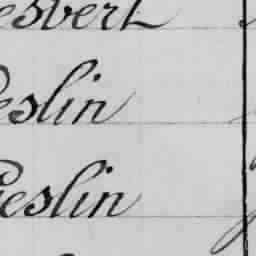 esbert
eslin
Geslin